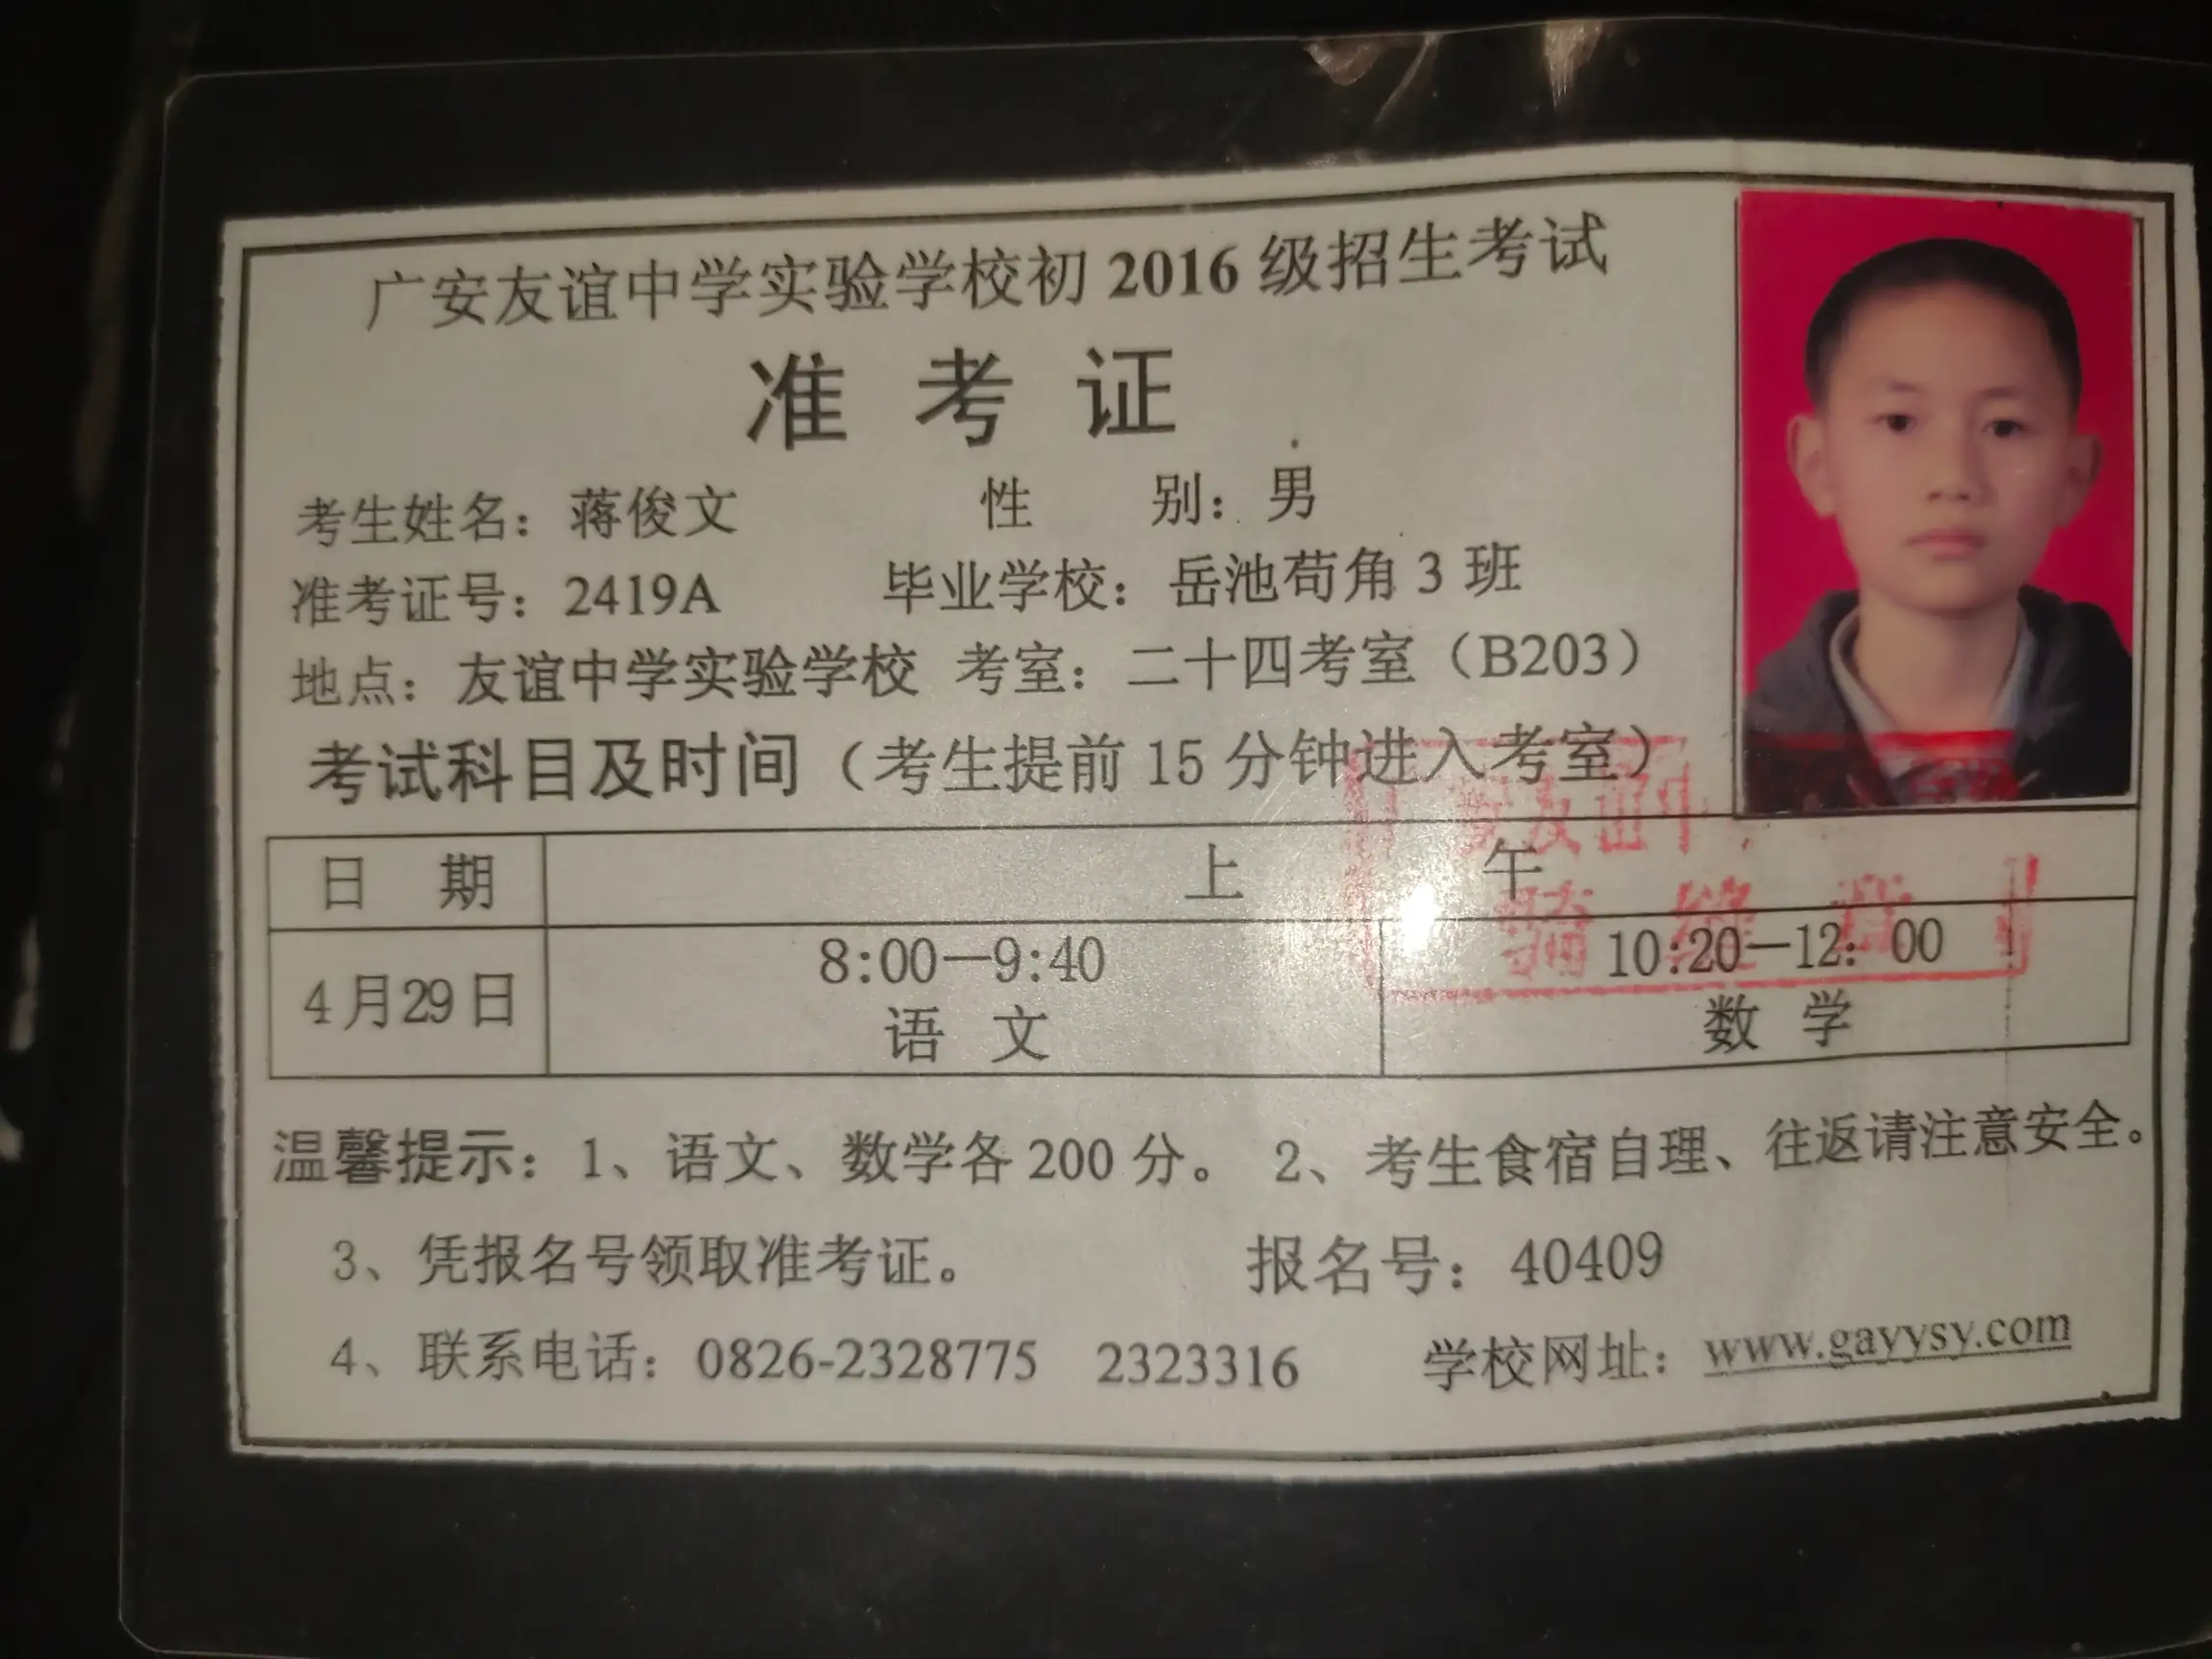 广安友谊中学实验学校初 2016 级招生考试
准 考 证
考生姓名：蒋俊文 性 别：男
准考证号：2419A 毕业学校：岳池苟角 3 班
地点：友谊中学实验学校 考室：二十四考室（B203）
考试科目及时间（考生提前 15 分钟进入考室）
日 期 上 午
4月29日 8:00—9:40 10:20—12：00
语 文 数 学
骑 缝 章
温馨提示：1、语文、数学各 200 分。 2、考生食宿自理、往返请注意安全。
3、凭报名号领取准考证。 报名号：40409
4、联系电话：0826-2328775 2323316 学校网址：www.gayysy.com